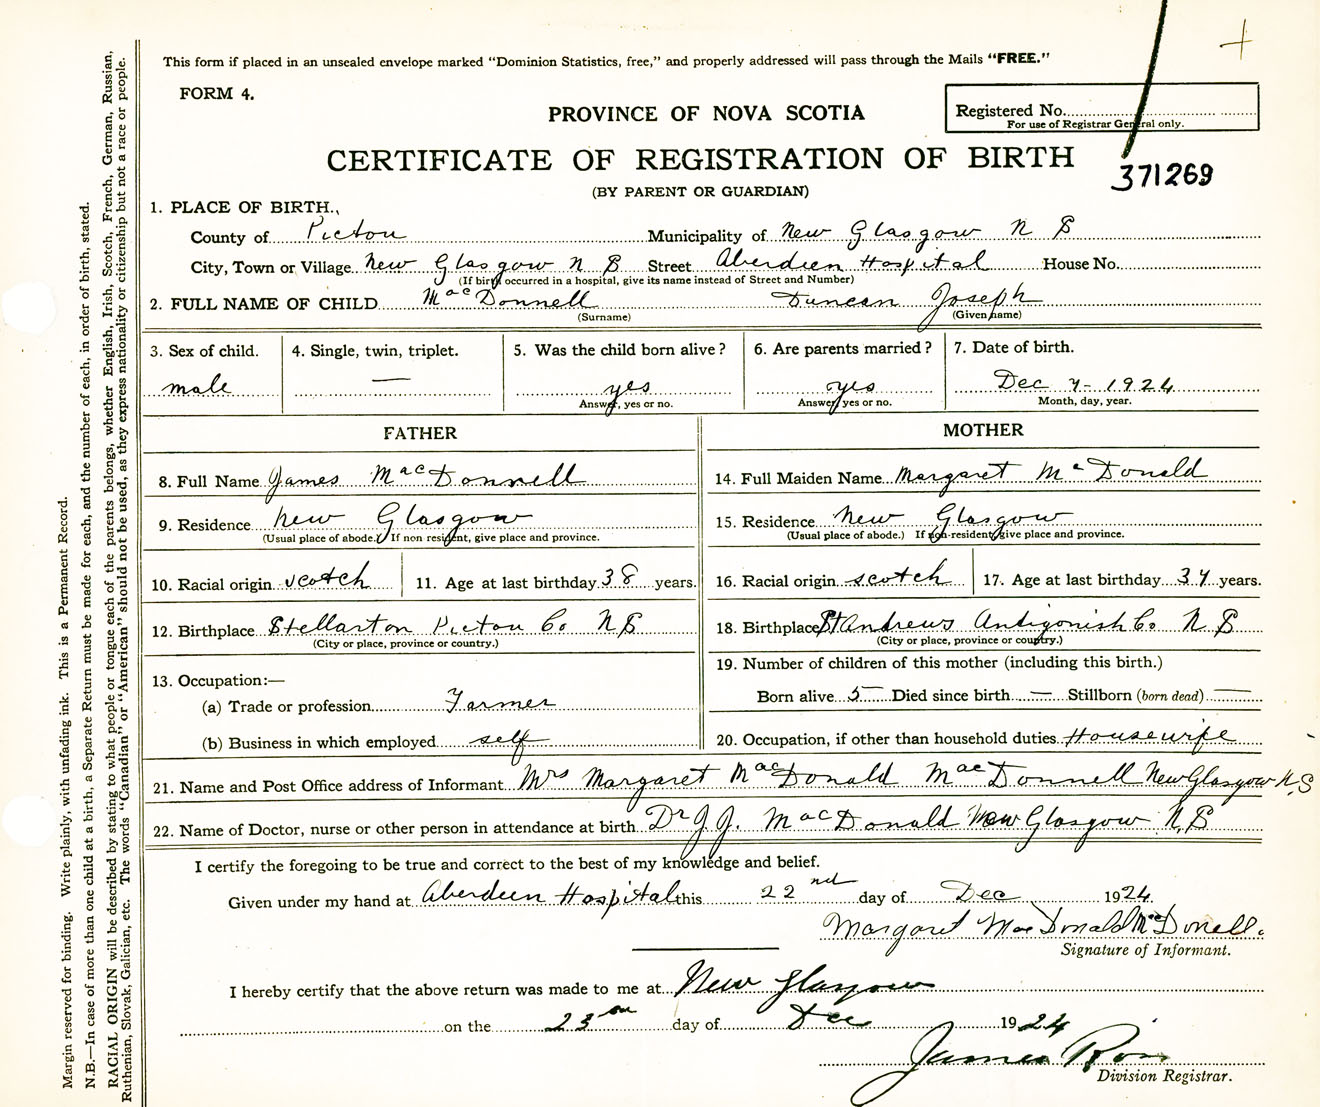 This form if placed in an unsealed envelope marked "Dominion Statistics, free," and properly addressed will pass through the Mails "FREE."
FORM 4.
PROVINCE OF NOVA SCOTIA
Registered No.
For use of Registrar General only.
CERTIFICATE OF REGISTRATION OF BIRTH
371269
(BY PARENT OR GUARDIAN)
1. PLACE OF BIRTH.
County of Pictou Municipality of New Glasgow N S
City, Town or Village New Glasgow N S Street Aberdeen Hospital House No.
(If birth occurred in a hospital, give its name instead of Street and Number)
2. FULL NAME OF CHILD MacDonnell Duncan Joseph
(Surname) (Given name)
3. Sex of child. 4. Single, twin, triplet. 5. Was the child born alive? 6. Are parents married? 7. Date of birth.
male — yes yes Dec 7 - 1924
Answer, yes or no. Answer, yes or no. Month, day, year.
FATHER MOTHER
8. Full Name James MacDonnell 14. Full Maiden Name Margaret McDonald
9. Residence New Glasgow 15. Residence New Glasgow
(Usual place of abode.) If non resident, give place and province. (Usual place of abode.) If non-resident, give place and province.
10. Racial origin scotch 11. Age at last birthday 38 years. 16. Racial origin scotch 17. Age at last birthday 34 years.
12. Birthplace Stellarton Pictou Co N S 18. Birthplace St Andrews Antigonish Co N S
(City or place, province or country.) (City or place, province or country.)
19. Number of children of this mother (including this birth.)
13. Occupation:—
Born alive 5 Died since birth — Stillborn (born dead) —
(a) Trade or profession Farmer
(b) Business in which employed self 20. Occupation, if other than household duties Housewife
21. Name and Post Office address of Informant Mrs Margaret MacDonald MacDonnell New Glasgow N.S
22. Name of Doctor, nurse or other person in attendance at birth Dr J. J. MacDonald New Glasgow N.S
I certify the foregoing to be true and correct to the best of my knowledge and belief.
Given under my hand at Aberdeen Hospital this 22nd day of Dec 1924.
Margaret MacDonald McDonell.
Signature of Informant.
I hereby certify that the above return was made to me at New Glasgow
on the 23 day of Dec 1924
James Ross
Division Registrar.
Margin reserved for binding. Write plainly, with unfading ink. This is a Permanent Record.
N.B.—In case of more than one child at a birth, a Separate Return must be made for each, and the number of each, in order of birth, stated.
RACIAL ORIGIN will be described by stating to what people or tongue each of the parents belongs, whether English, Irish, Scotch, French, German, Russian,
Ruthenian, Slovak, Galician, etc. The words "Canadian" or "American" should not be used, as they express nationality or citizenship but not a race or people.